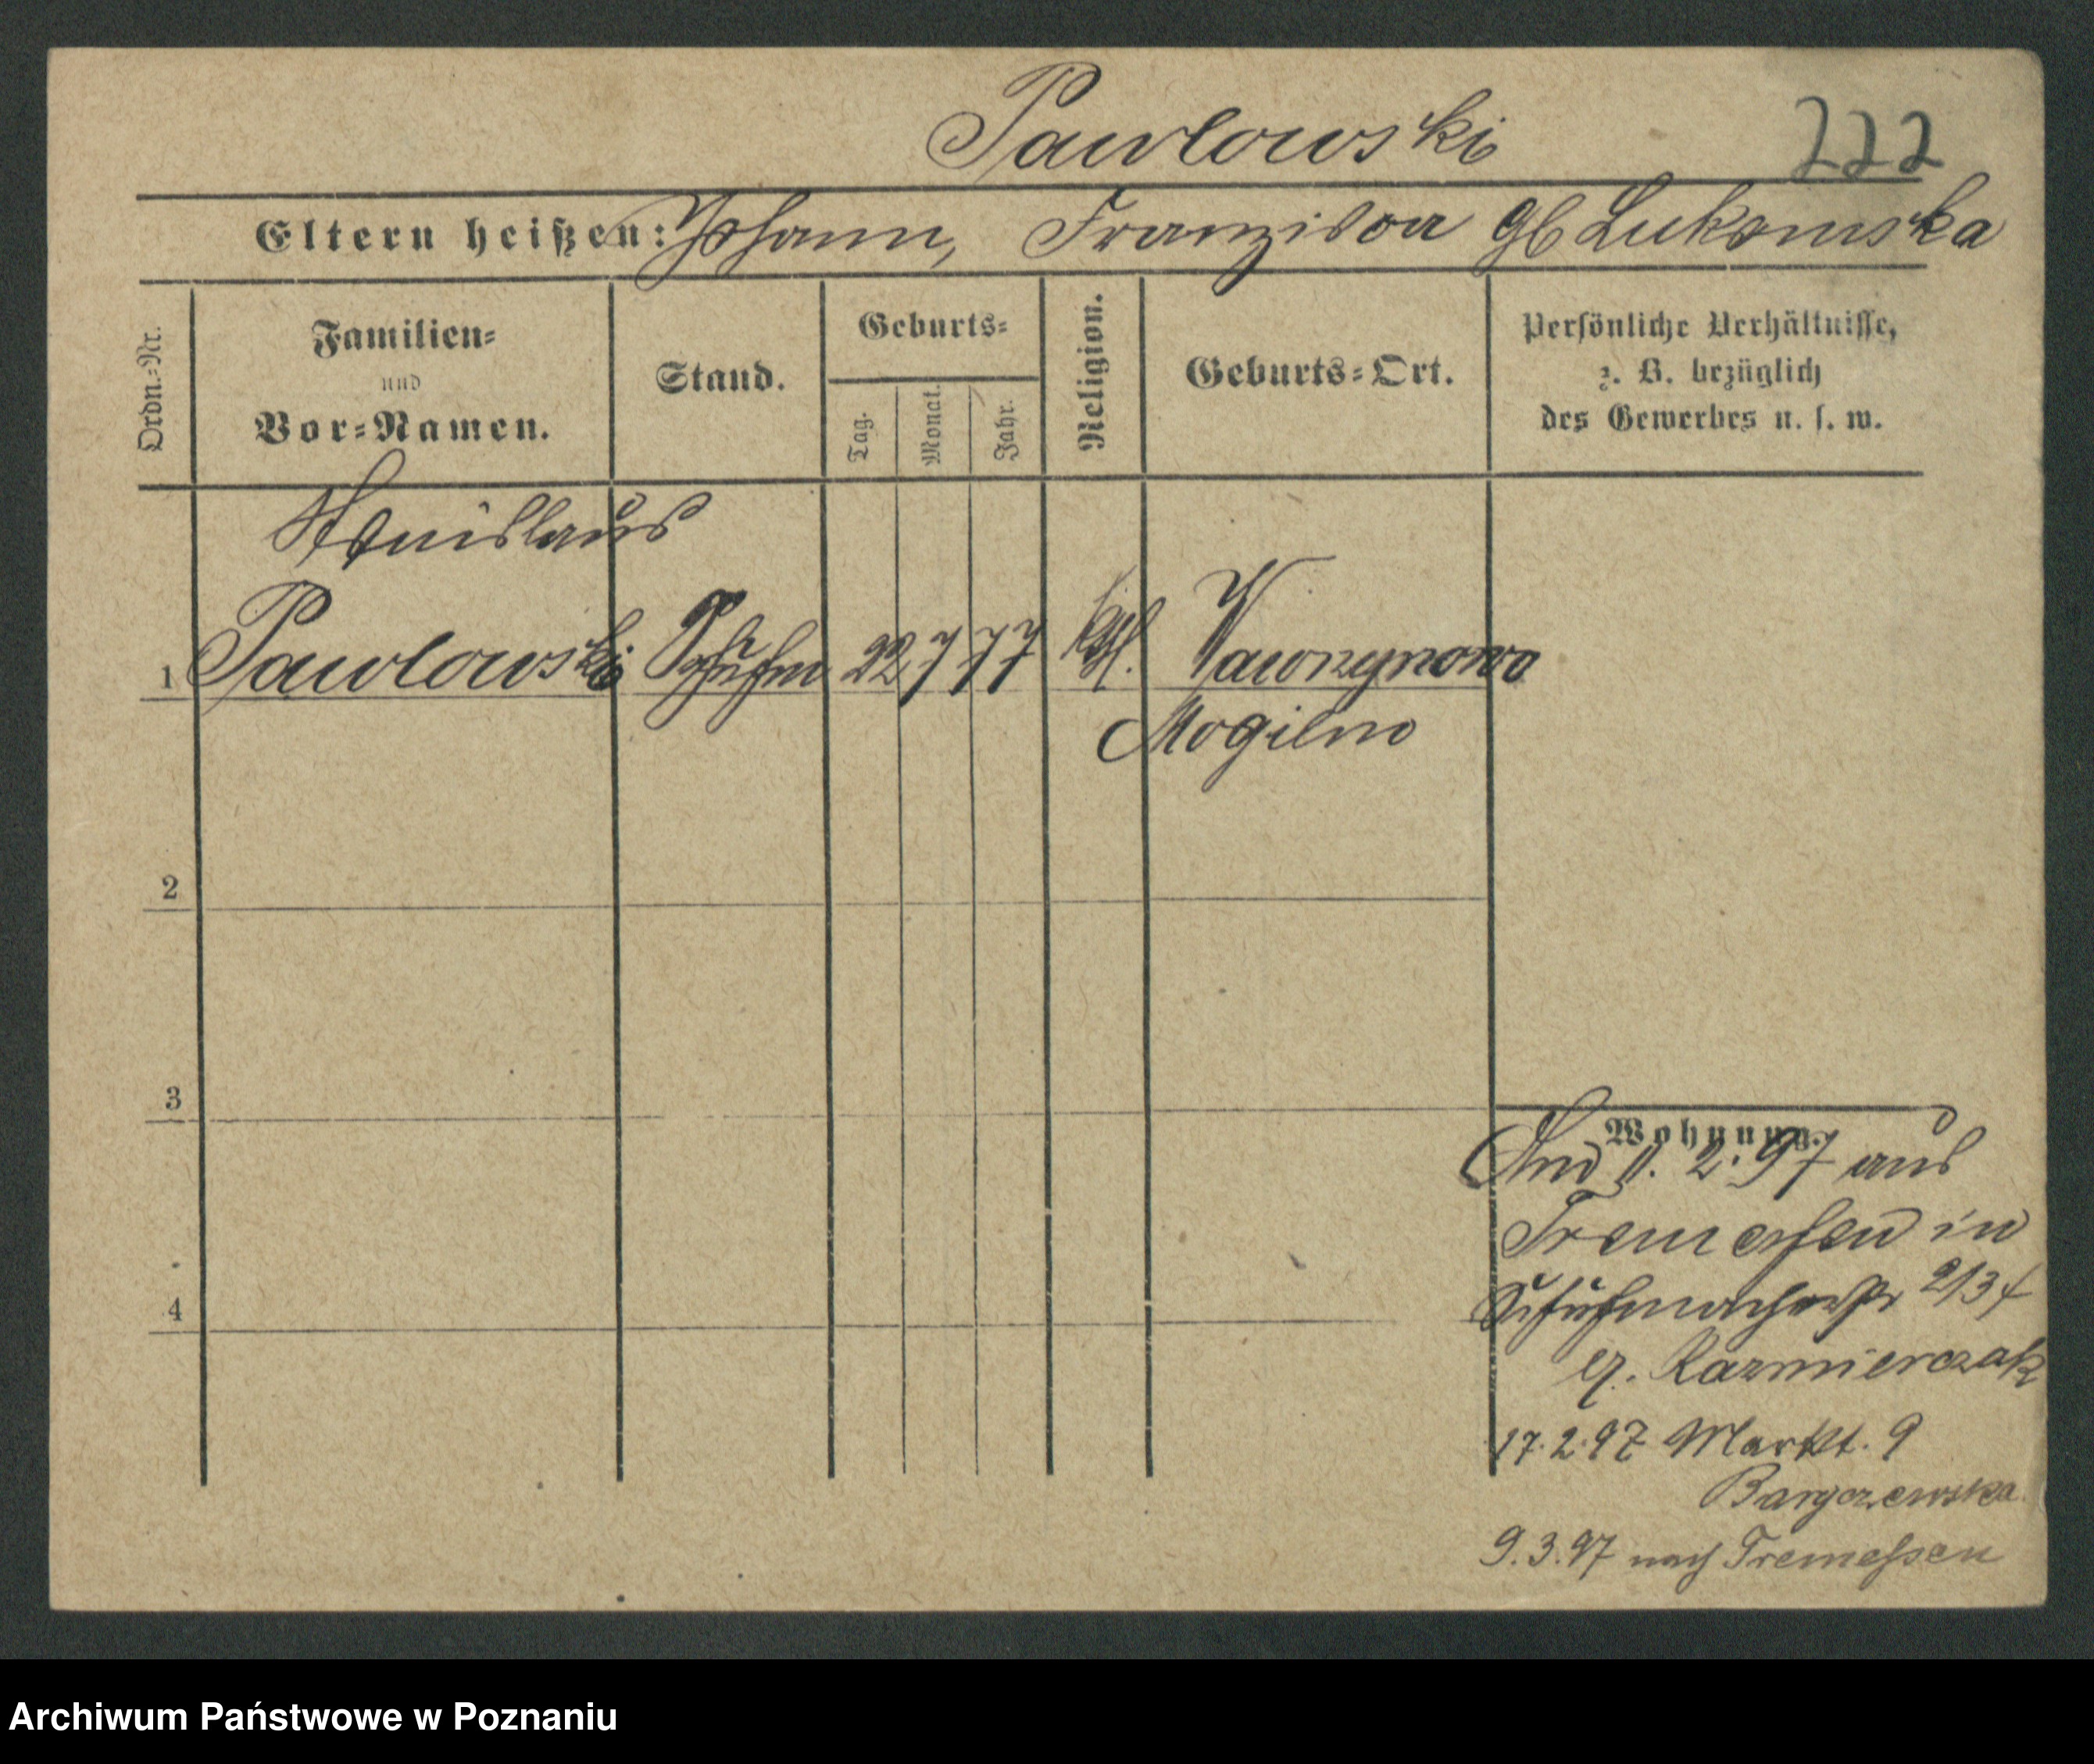 Pawlowski
222
Eltern heißen: Johann, Franziska gb Lukomska
Ordn.=Nr.
Familien=
und
Vor=Namen.
Stand.
Geburts=
Tag.
Monat.
Jahr.
Religion.
Geburts=Ort.
Persönliche Verhältnisse,
z. B. bezüglich
des Gewerbes u. s. w.
Stanislaus
1 Pawlowski 22 7 77 kath. Wawrzynowo
Mogilno
2
3
4
Wohnung.
2. 97 aus
Tremessen in
Schuhmacherstr 213
Kazmierczak
17. 2. 97 Markt. 9
Barczewska
9. 3. 97 nach Tremessen
Archiwum Państwowe w Poznaniu